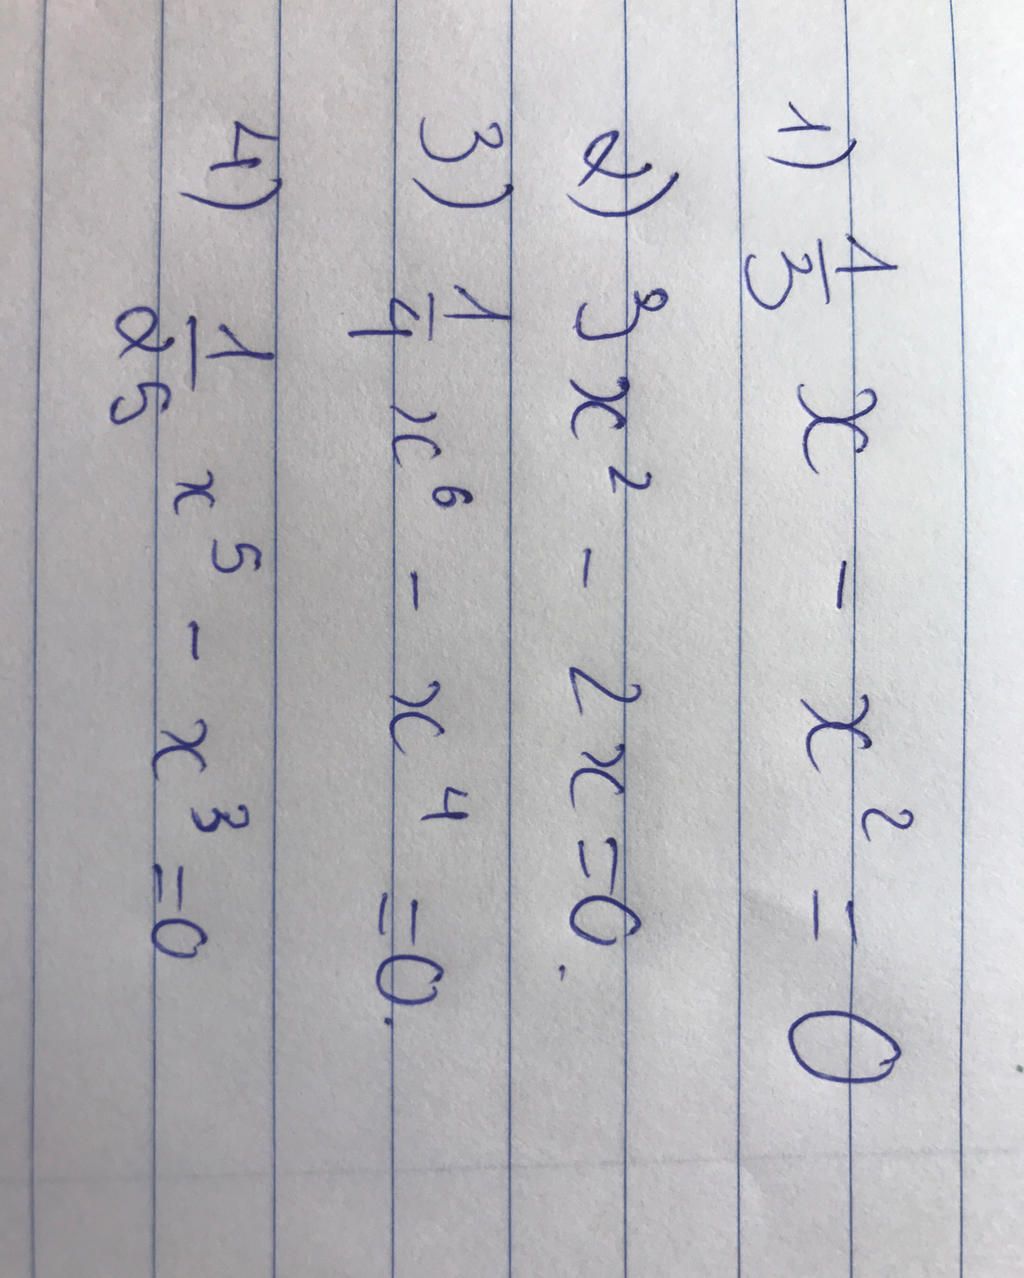 1) 1/3 x - x² = 0
2) 3x² - 2x = 0.
3) 1/4 x⁶ - x⁴ = 0.
4) 1/25 x⁵ - x³ = 0